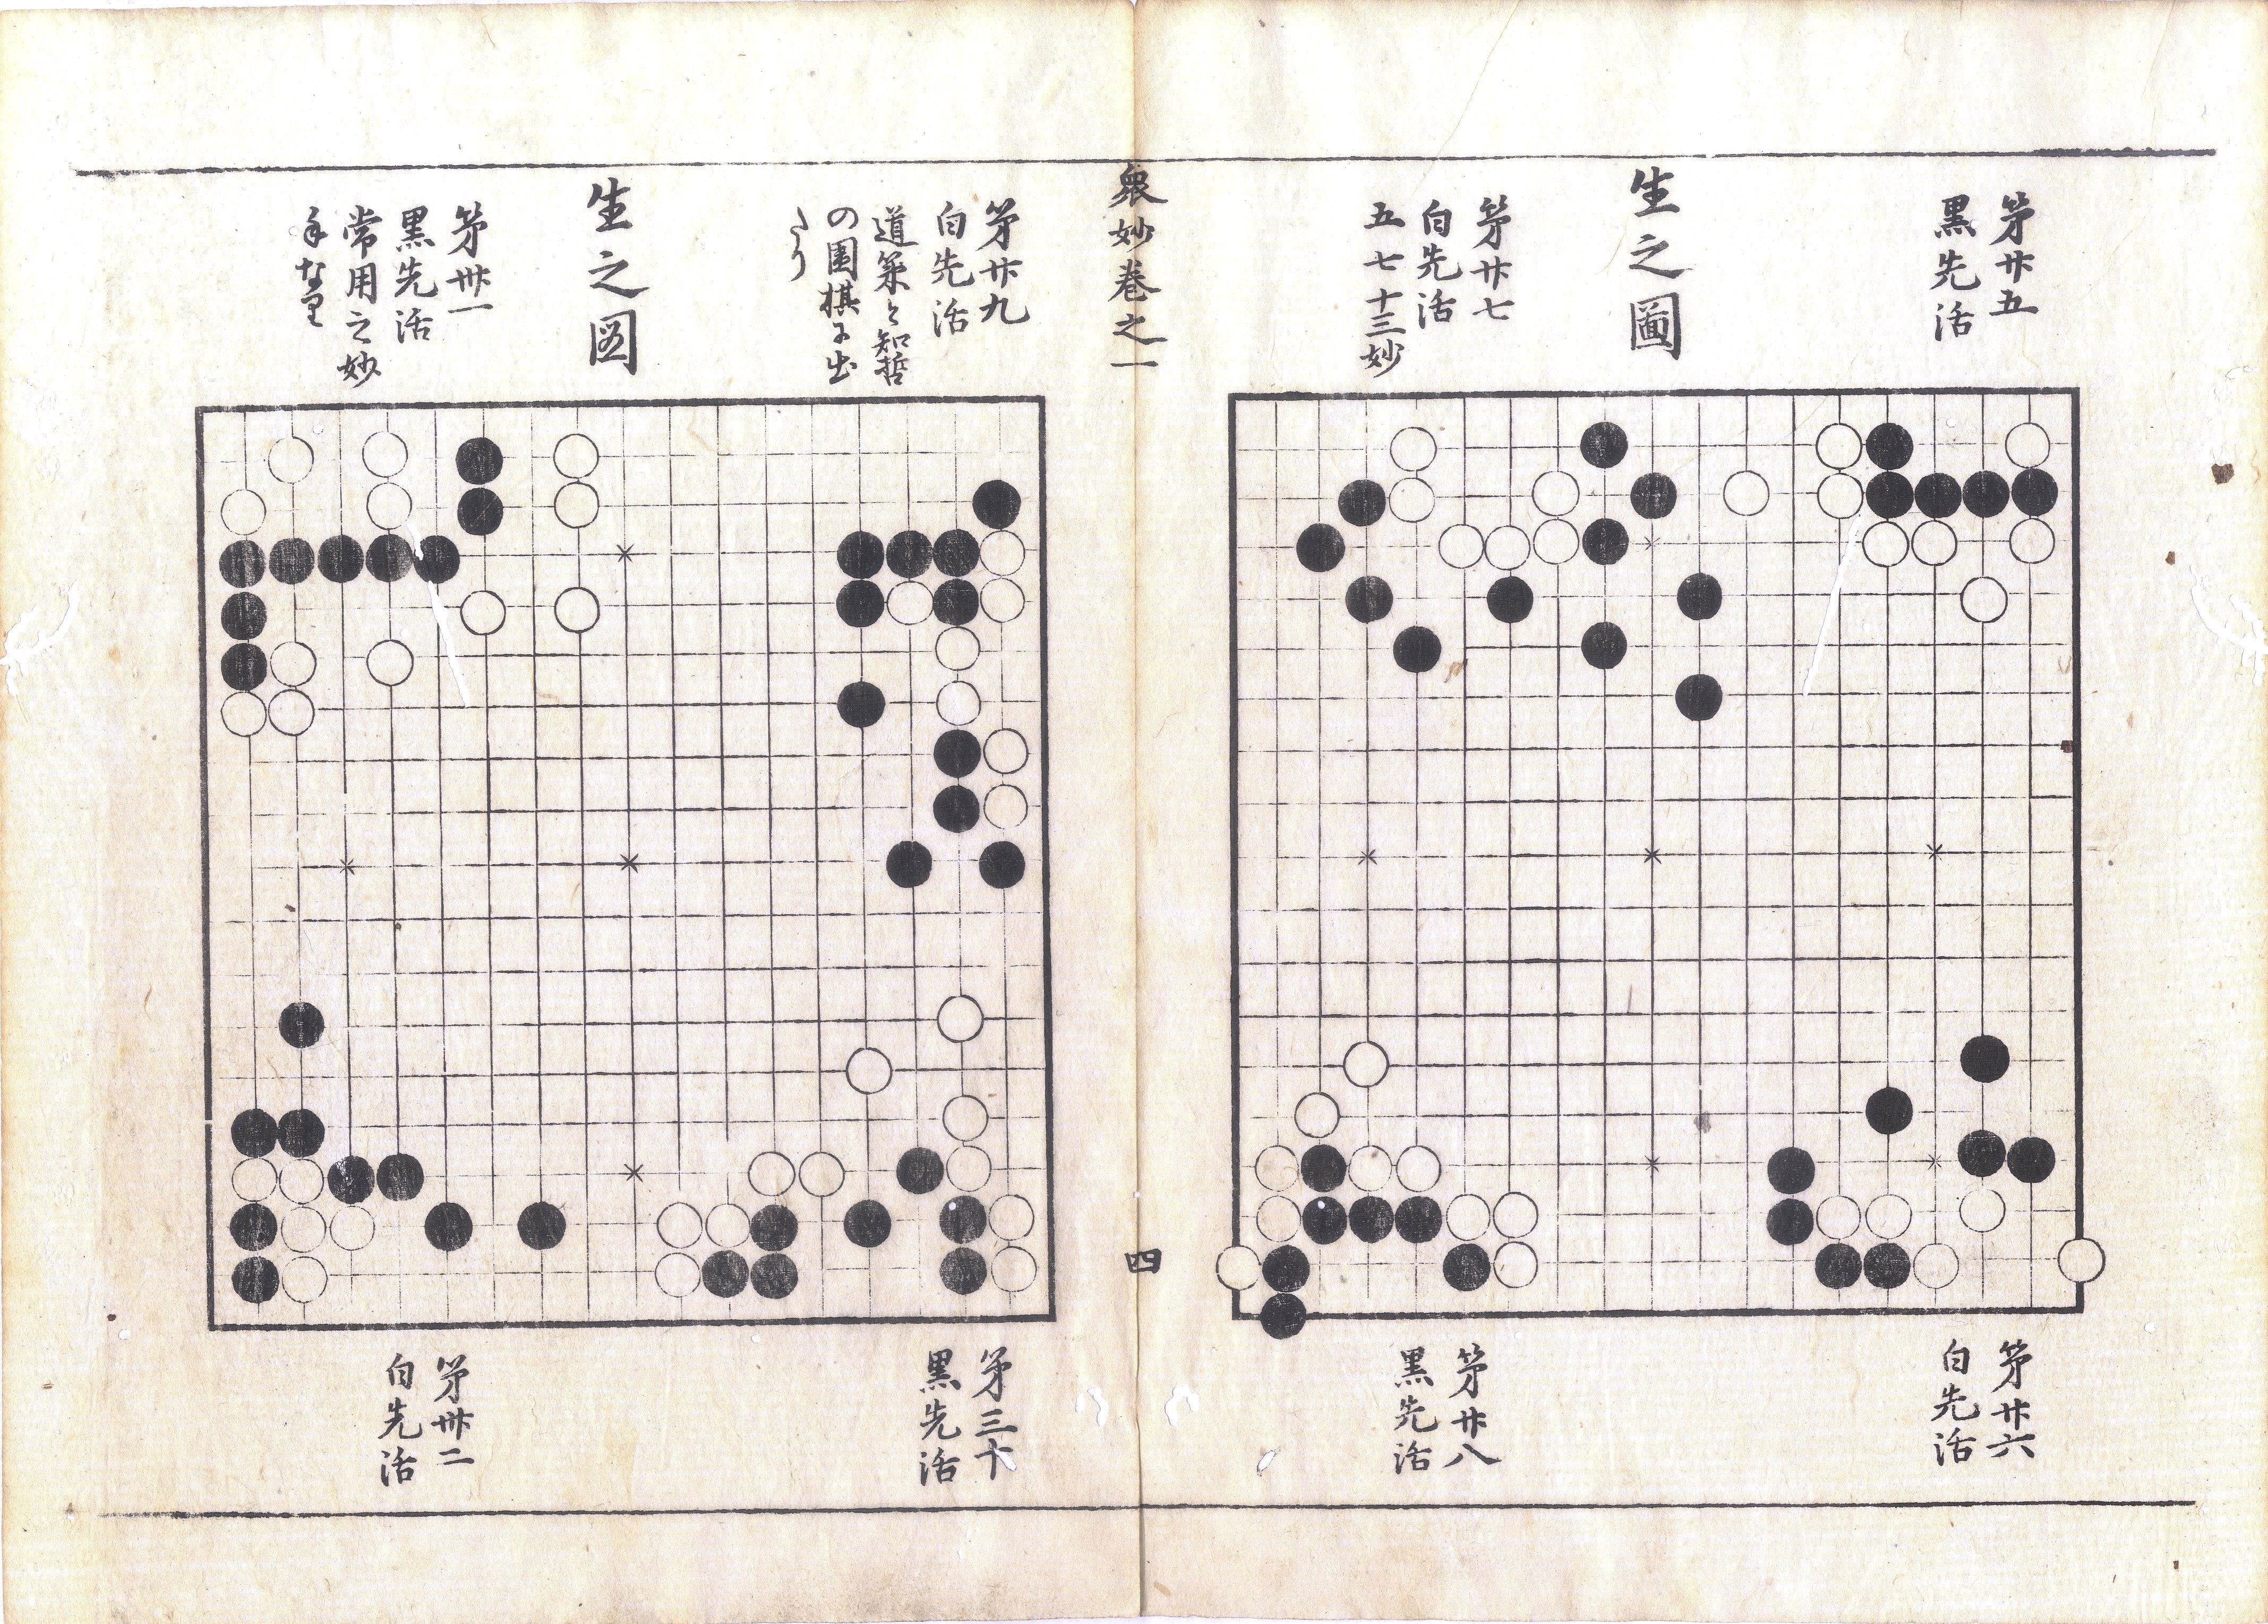 第廿五
黒先活
生之圖
第廿七
白先活
五七十三妙
第廿六
白先活
第廿八
黒先活
衆妙巻之一
四
第廿九
白先活
道策と知哲
の囲棋に出
たり
生之図
第丗一
黒先活
常用之妙
手な里
第三十
黒先活
第丗二
白先活